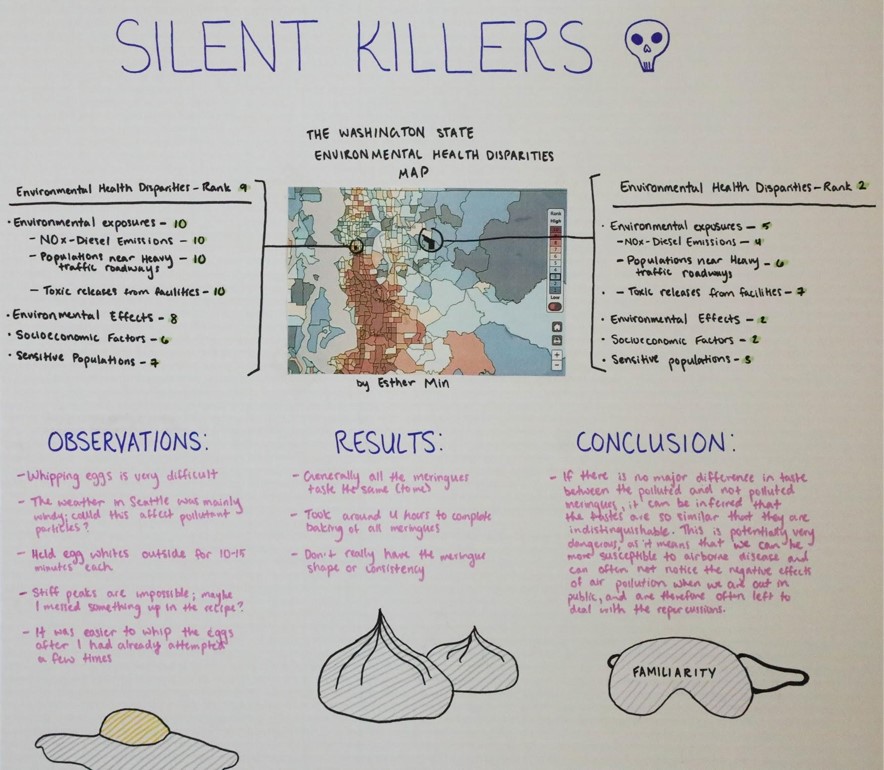 SILENT KILLERS
THE WASHINGTON STATE
ENVIRONMENTAL HEALTH DISPARITIES
MAP
Environmental Health Disparities - Rank 9
• Environmental exposures - 10
- NOx-Diesel Emissions - 10
- Populations near Heavy - 10
traffic roadways
- Toxic releases from facilities - 10
• Environmental Effects - 8
• Socioeconomic Factors - 6
• Sensitive Populations - 7
Rank
High
10
9
8
7
6
5
4
3
2
1
Low
+
−
by Esther Min
Environmental Health Disparities - Rank 2
• Environmental exposures - 5
- NOx-Diesel Emissions - 4
- Populations near Heavy - 6
traffic roadways
- Toxic releases from facilities - 7
• Environmental Effects - 2
• Socioeconomic Factors - 2
• Sensitive populations - 5
OBSERVATIONS:
- Whipping eggs is very difficult
- The weather in Seattle was mainly
windy; could this affect pollutant
particles?
- Held egg whites outside for 10-15
minutes each
- Stiff peaks are impossible; maybe
I messed something up in the recipe?
- It was easier to whip the eggs
after I had already attempted
a few times
RESULTS:
- Generally all the meringues
taste the same (to me)
- Took around 4 hours to complete
baking of all meringues
- Don't really have the meringue
shape or consistency
CONCLUSION:
- If there is no major difference in taste
between the polluted and not polluted
meringues, it can be inferred that
the tastes are so similar that they are
indistinguishable. This is potentially very
dangerous, as it means that we can be
more susceptible to airborne disease and
can often not notice the negative effects
of air pollution when we are out in
public, and are therefore often left to
deal with the repercussions.
FAMILIARITY